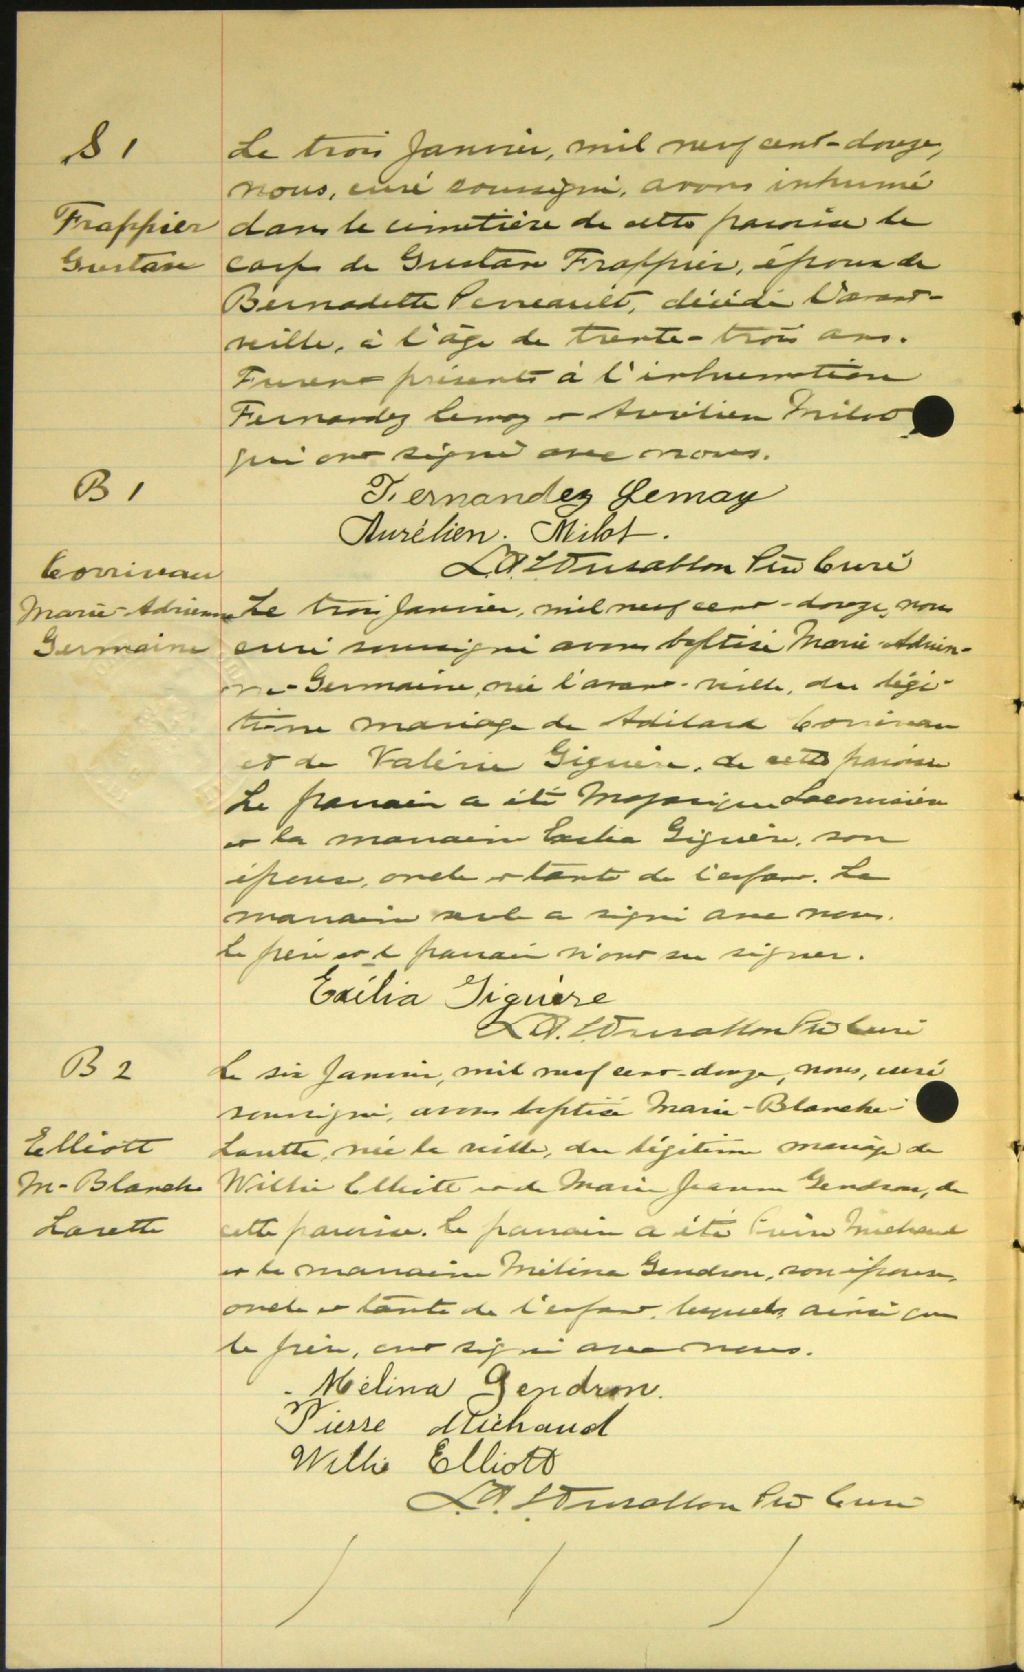 S 1
Frappier
Gustave
Le trois Janvier, mil neuf cent-douze,
nous, curé soussigné, avons inhumé
dans le cimetière de cette paroisse le
corps de Gustave Frappier, époux de
Bernadette Perreault, décédé l'avant-
veille, à l'âge de trente-trois ans.
Furent présents à l'inhumation
Fernandez Lemay et Aurélien Milot
qui ont signé avec nous.
Fernandez Lemay
Aurélien. Milot.
Ptre Curé
B 1
Corriveau
Marie-Adrienne
Germaine
Le trois Janvier, mil neuf cent-douze, nous
curé soussigné avons baptisé Marie-Adrien-
ne-Germaine, née l'avant-veille, du légi-
time mariage de Adélard Corriveau
et de Valérie Giguère, de cette paroisse
Le parrain a été Lacoursière
et la marraine Exilia Giguère, son
épouse, oncle et tante de l'enfant. La
marraine seule a signé avec nous.
Le père et le parrain n'ont su signer.
Exilia Giguère
Ptre Curé
B 2
Elliott
M-Blanche
Laurette
Le six Janvier, mil neuf cent-douze, nous, curé
soussigné, avons baptisé Marie-Blanche-
Laurette, née la veille, du légitime mariage de
Willie Elliott et de Marie Jeanne Gendron, de
cette paroisse. Le parrain a été Pierre Michaud
et la marraine Mélina Gendron, son épouse,
oncle et tante de l'enfant, lesquels, ainsi que
le père, ont signé avec nous.
Mélina Gendron.
Pierre Michaud
Willie Elliott
Ptre Curé